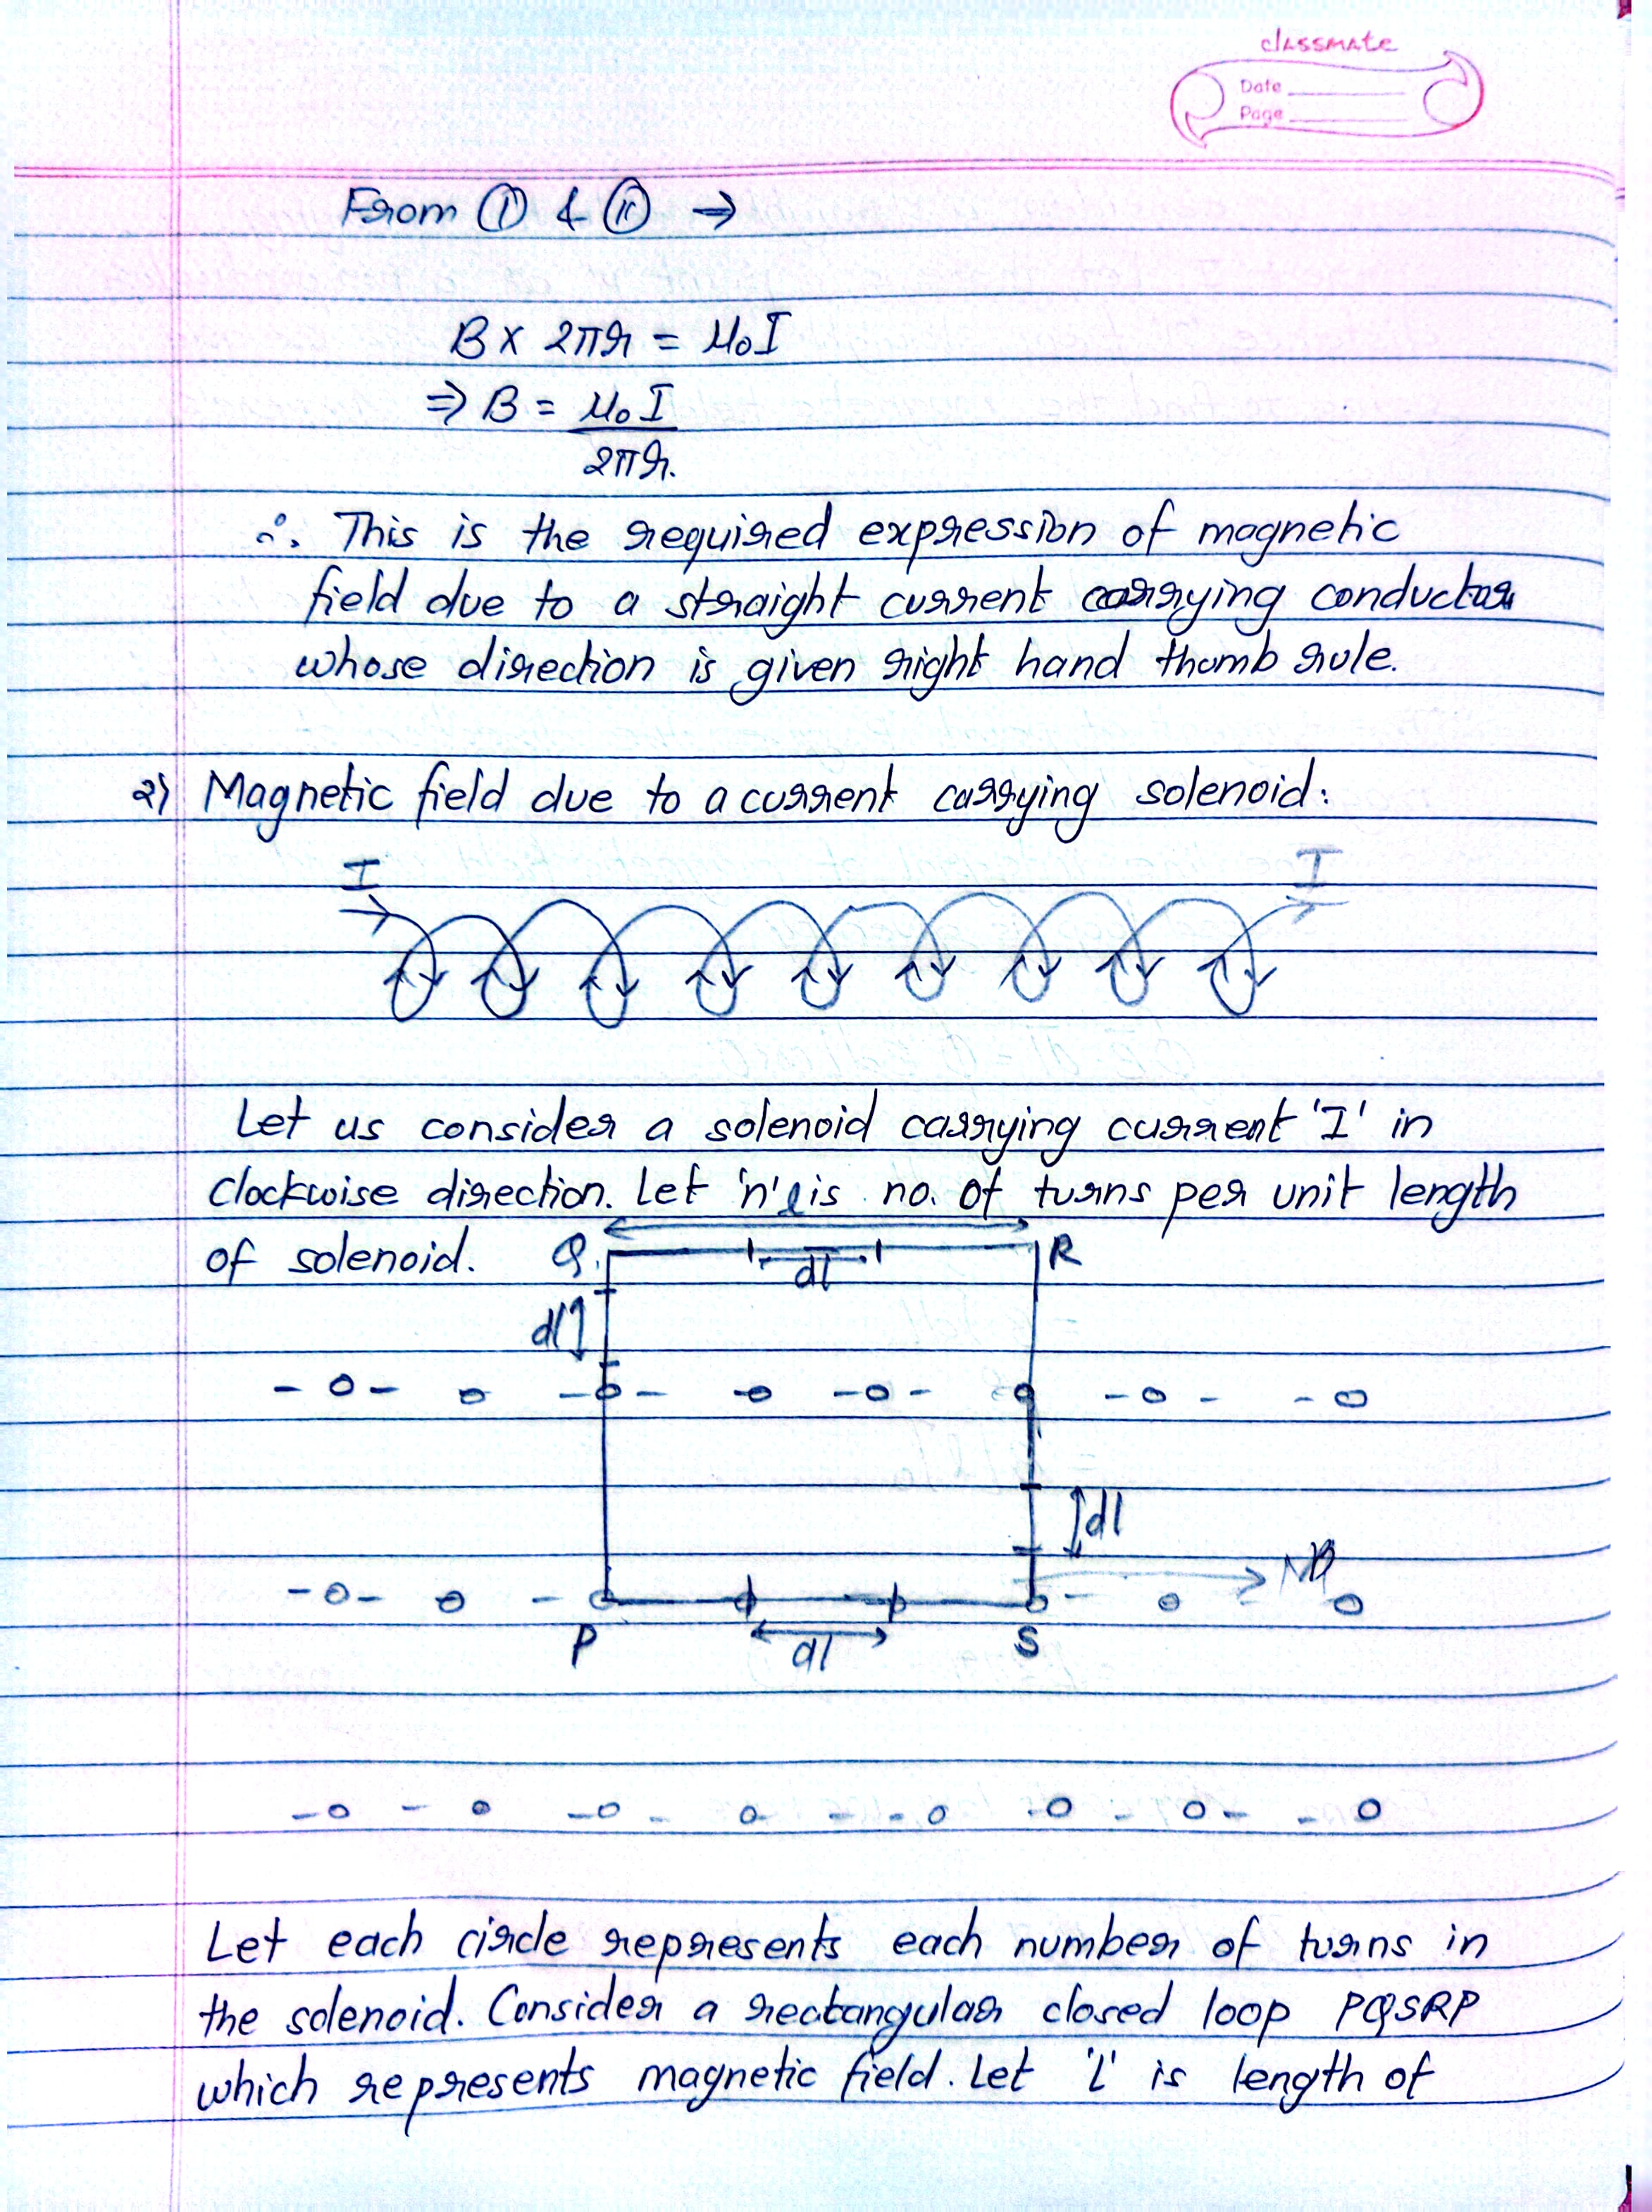 classmate
Date
Page
From (i) & (ii) ⇒
B × 2πr = μ₀I
⇒ B = μ₀I
2πr.
∴ This is the required expression of magnetic
field due to a straight current carrying conductor
whose direction is given right hand thumb rule.
2) Magnetic field due to a current carrying solenoid:
I I
Let us consider a solenoid carrying current 'I' in
clockwise direction. Let 'n' is no. of turns per unit length
l
of solenoid. Q R
dl
dl
dl
P S
dl
Let each circle represents each number of turns in
the solenoid. Consider a rectangular closed loop PQSRP
which represents magnetic field. Let 'l' is length of